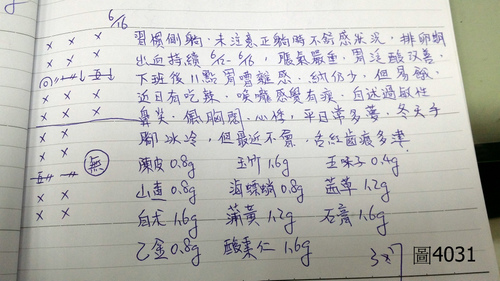 6/16
× × × 習慣側躺,未注意正躺時不舒感狀況,排卵期
× × × 出血持續 脹氣嚴重,胃泛酸改善,
下班後11點胃嘈雜感,納仍少,但易餓,
× × × 近日有吃辣,喉嚨感覺有痰,自述過敏性
× × × 鼻炎,偶胸悶,心悸,平日常多夢,冬天手
× × 腳冰冷,但最近不會,舌紅齒痕多津
× × 無 陳皮 0.8g 玉竹 1.6g 五味子 0.4g
山楂 0.8g 海螵蛸 0.8g 茜草 1.2g
× × 1.6g 蒲黃 1.2g 石膏 1.6g
× × 乙金 0.8g 酸棗仁 1.6g
3×7
圖4031